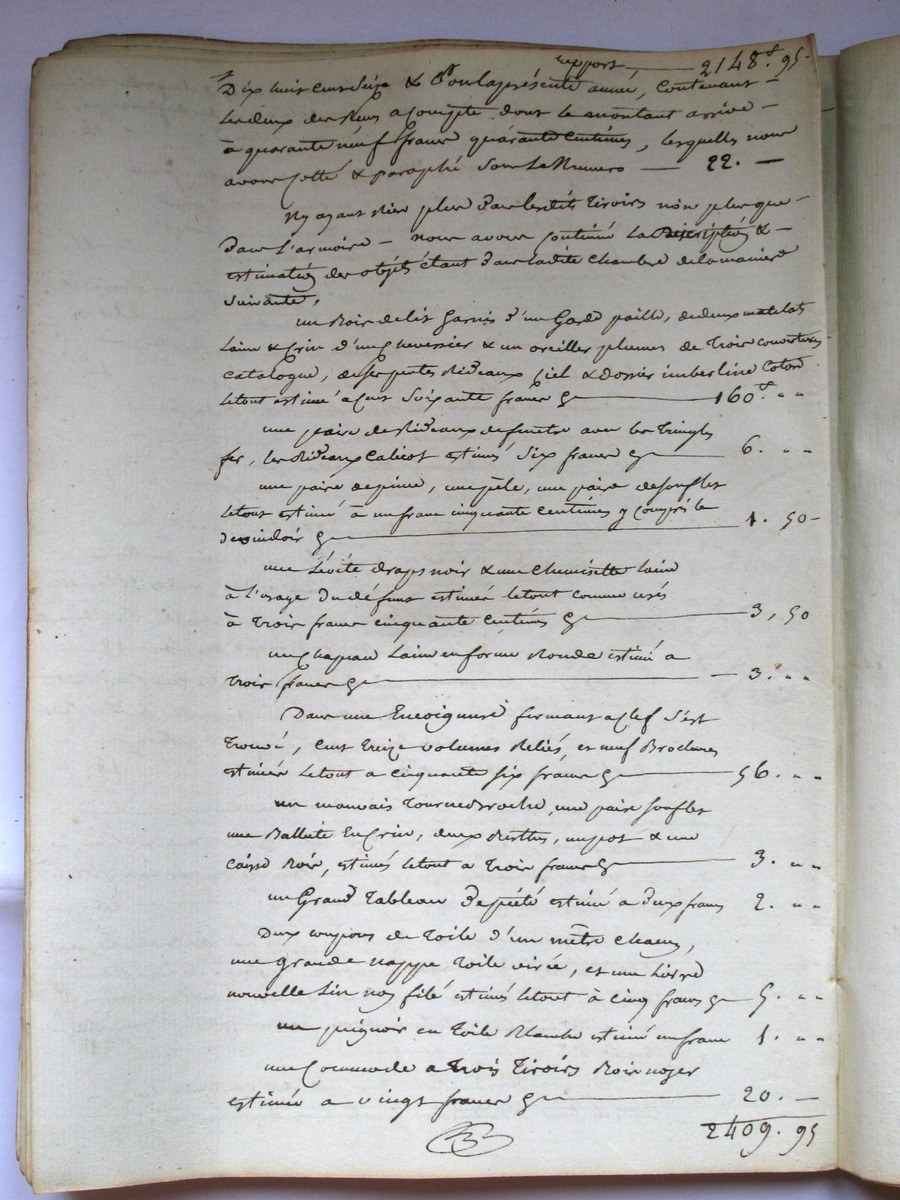 report, — 2148.f 95
Dix huit cent Seize & pour la présente année, Contenant
les deux des Reçus acompte, dont le montant arrive
à quarante neuf francs quarante Centimes, lesquelles nous
avons cotté & paraphé Sous Le Numero — 22. —
N'y ayant Rien plus Dans lesdits Tiroirs non plus que
Dans L'armoire — nous avons continué La Description &
estimation des objets étant Dans ladite Chambre de la maniere
Suivante,
un Bois de lit Garnis d'un Garde paille, de deux matelats
Laine & Crin d'un Chevessier & un oreiller plumes de Trois Couvertures
Catalogue, de ses pentes Rideaux Ciel & dossier imberline Coton
le tout estimé a Cent Soixante francs — 160.f " "
une paire de Rideaux de fenetre avec les Tringles
fer, les Rideaux Calicot estimés Six francs — 6. " "
une paire de pince, une péle, une paire de soufflet
le tout estimé à un franc cinquante centimes y compris le
devindoir — 1. 50
une Lévite draps noir & une Chemisette laine
à l'usage du défunt estimés le tout comme usés
à Trois francs cinquante Centimes — 3, 50
un Chapeau Laine en forme Ronde estimé a
Trois francs — 3. " "
Dans une Encoignure fermant a Clef S'est
Trouvé, Cent Treize volumes Reliés, et neuf Brochures
estimés le tout a cinquante six francs — 56. " "
un mauvais Tournebroche, une paire soufflet
une Ballute En Crin, deux, un pot & une
Caisse Bois, estimés le tout a Trois francs — 3. " "
un Grand Tableau De piété estimé a Deux francs 2. " "
Deux coupons de Toile d'un mètre Chacun,
une grande nappe Toile virée, et une Livre
nouvelle Lin non filé estimés le tout à Cinq francs — 5. " "
un peignoir en Toile Blanche estimé un franc 1. " "
une Commode a Trois Tiroirs Bois noyer
estimée a vingt francs — 20. —
2409. 95